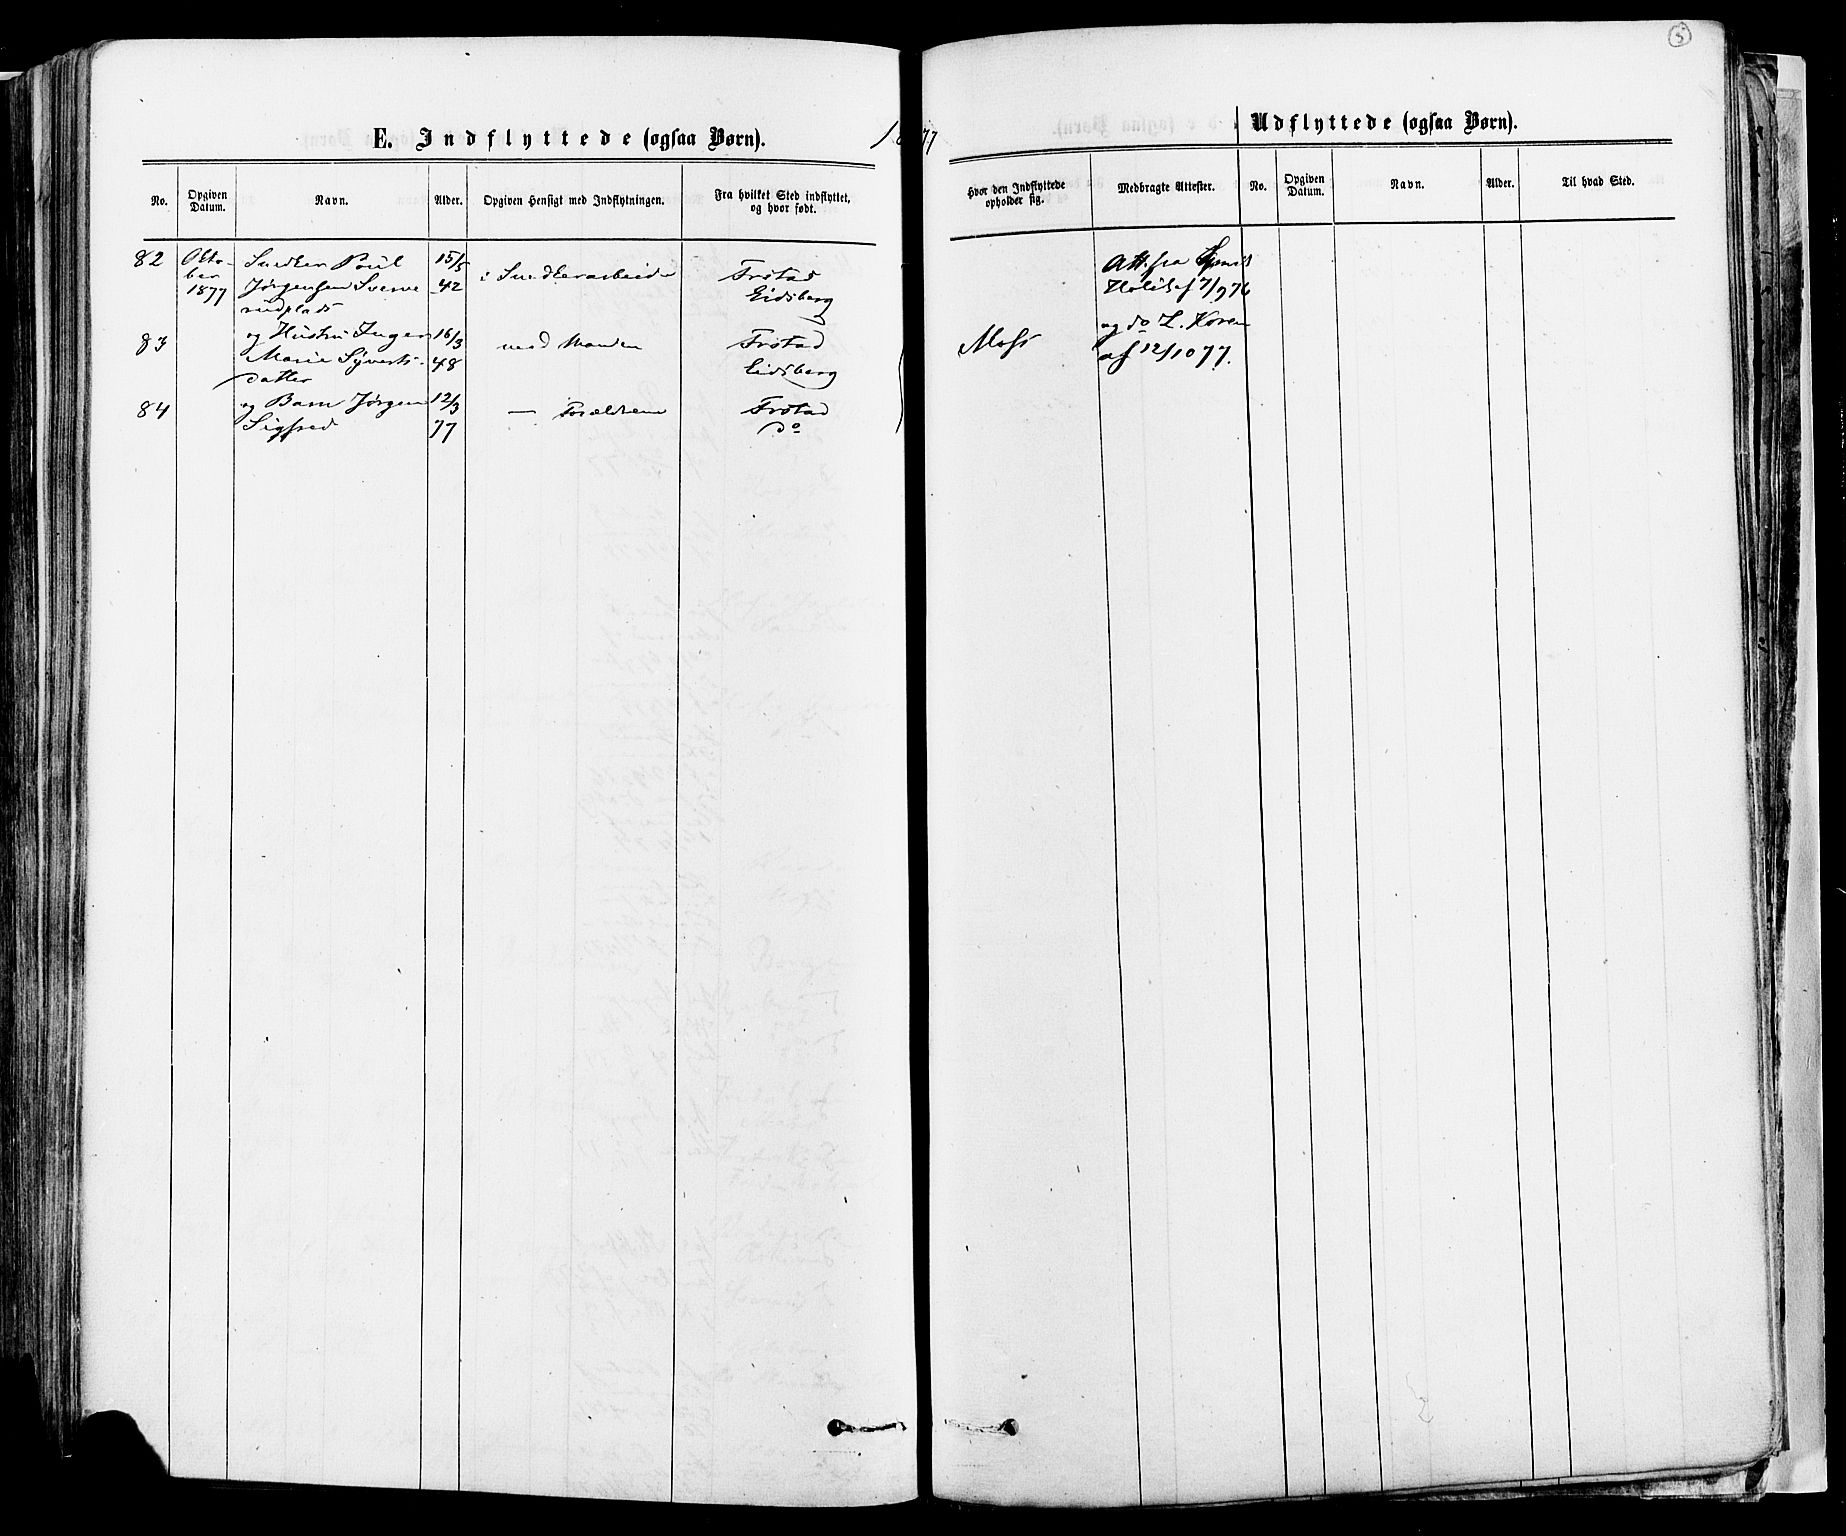 5
E. Indflyttede (ogsaa Børn).
1877
Udflyttede (ogsaa Børn).
No.
Opgiven Datum.
Navn.
Alder.
Opgiven Hensigt med Indflytningen.
Fra hvilket Sted indflyttet, og hvor født.
Hvor den Indflyttede opholder sig.
Medbragte Attester.
No.
Opgiven Datum.
Navn.
Alder.
Til hvad Sted.
82 Okto- Snedker Poul 15/5 i Snedkerarbeide Trøstad Att. fra
ber Jørgensen 42 Eidsberg af 7/9 76
1877
83 og Hustru Inger 16/3 med Manden Trøstad Moss og do L. Koren
Marie Syverts- 48 Eidsberg af 12/10 77.
datter
84 og Barn Jørgen 12/3 — Forældrene Trøstad
Sigfred 77 do